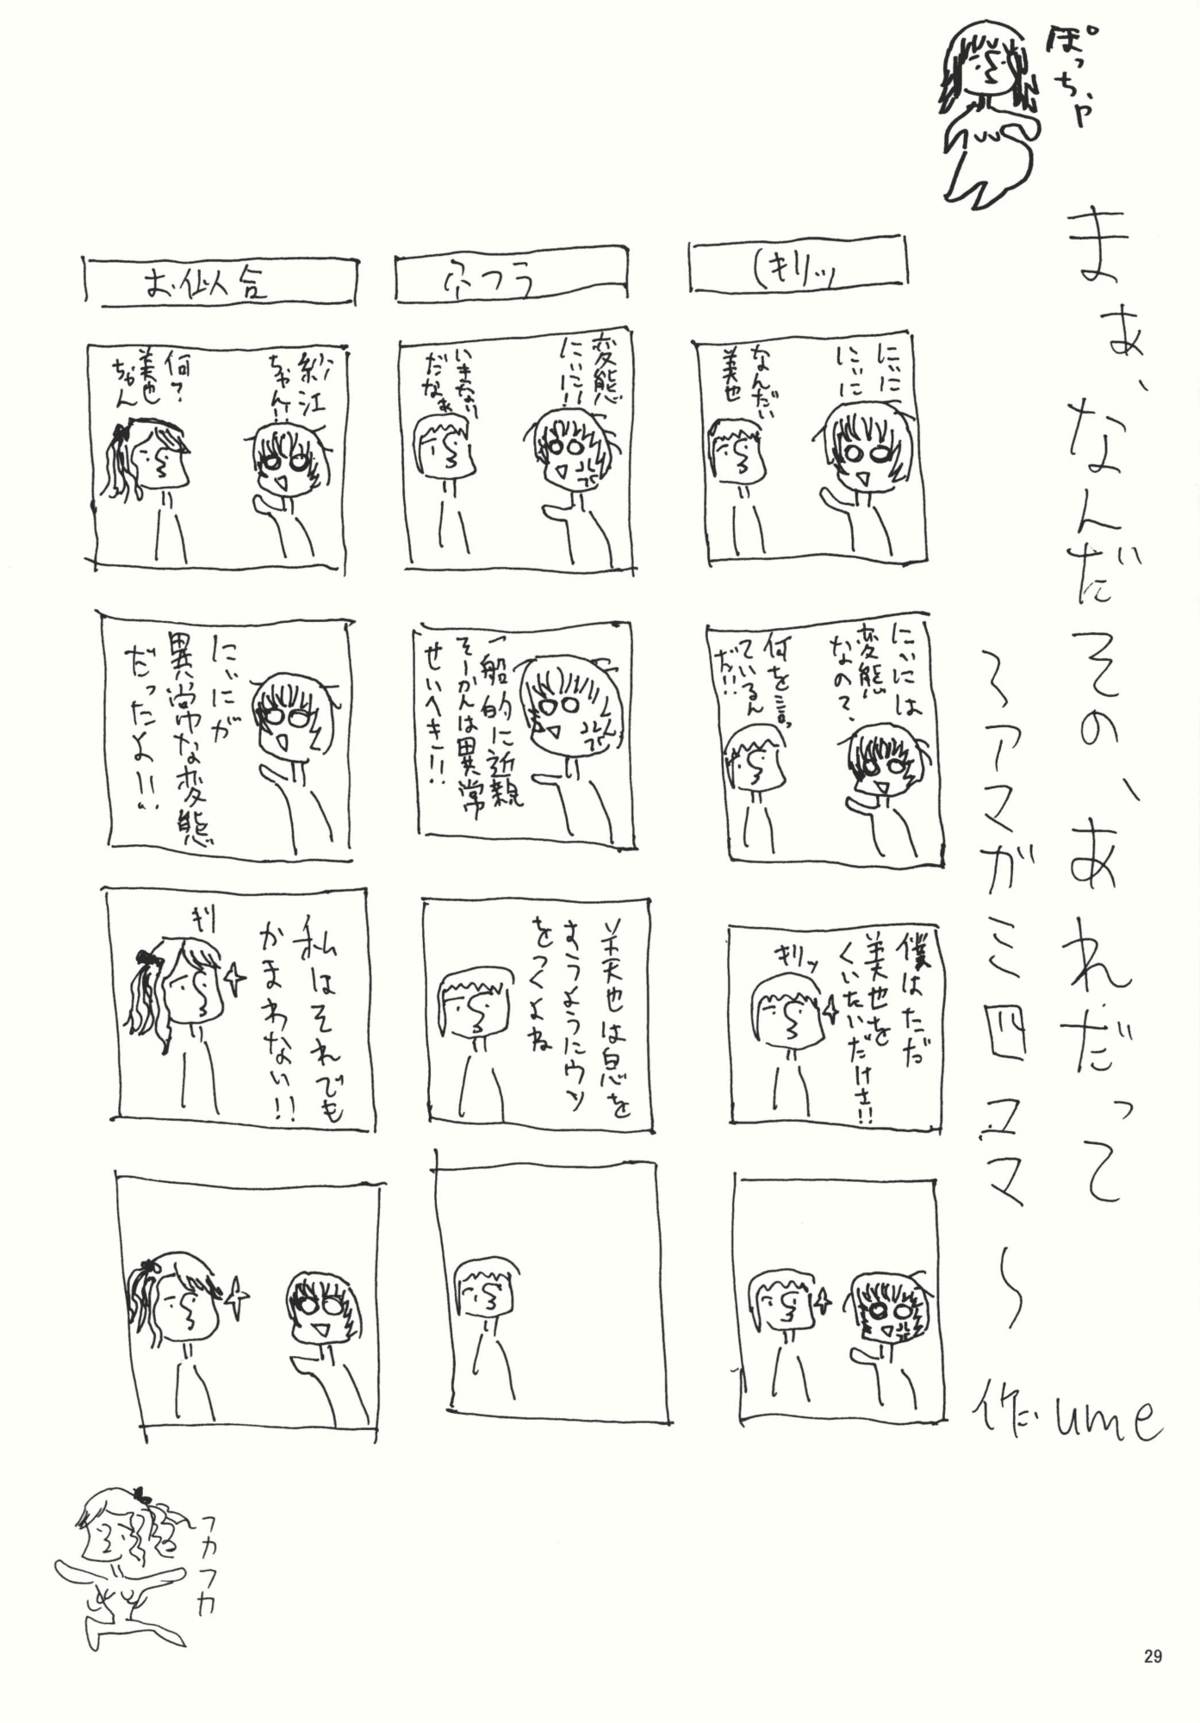 ぽっちゃ
まぁ、なんだその、あれだって
〜アマガミ四コマ〜
作 ume
(キリッ
にぃに
にぃに
なんだい
美也
にぃには
変態
なの?
何を言っ
ているん
だ!!
僕はただ
美也を
くいたいだけさ!!
キリッ
変態
にぃに!!
いきなり
だなぁ
一般的に近親
そーかんは異常
せいへき!!
美也は息を
すうようにウソ
をつくよね
お似合
紗江
ちゃん!!
何?
美也
ちゃん
にぃにが
異常な変態
だったよ!!
私はそれでも
かまわない!!
キリ
フカフカ
29